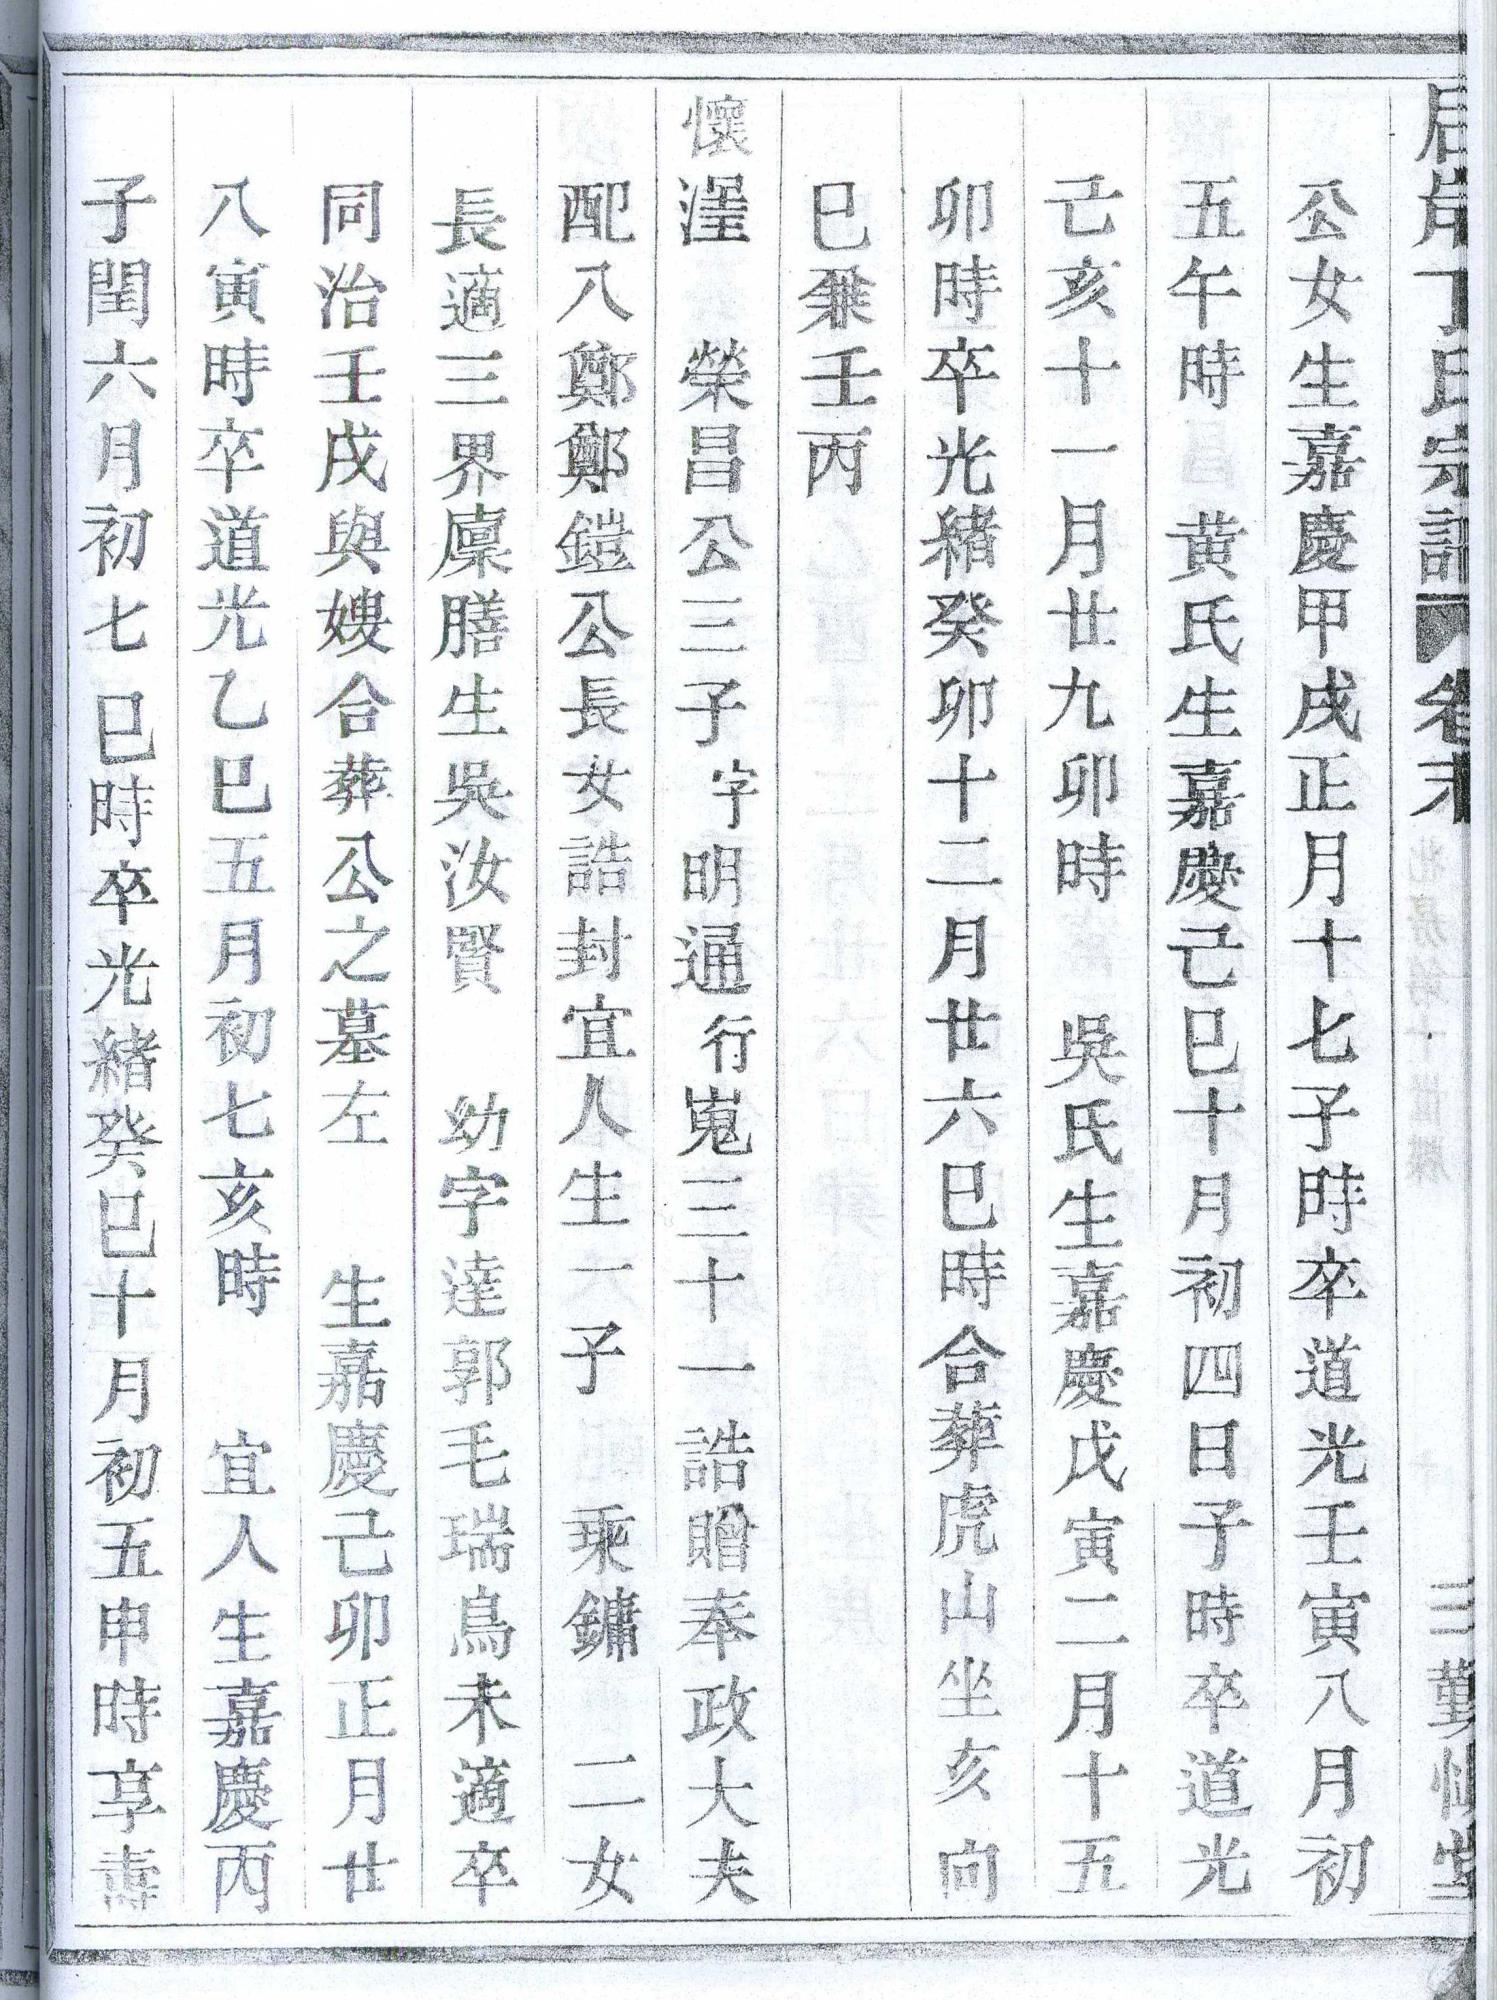 丁氏宗譜 卷末 三勤慎堂
公女生嘉慶甲戌正月十七子時卒道光壬寅八月初
五午時 黄氏生嘉慶己巳十月初四日子時卒道光
己亥十一月廿九卯時 吳氏生嘉慶戊寅二月十五
卯時卒光緒癸卯十二月廿六巳時合葬虎山坐亥向
巳兼壬丙
懷漟 榮昌公三子字明通行嵬三十一誥贈奉政大夫
配八鄭鄭鎧公長女誥封宜人生一子 乘鏞 二女
長適三界廩膳生吳汝賢 幼字達郭毛瑞鳥未適卒
同治壬戌與嫂合葬公之墓左 生嘉慶己卯正月廿
八寅時卒道光乙巳五月初七亥時 宜人生嘉慶丙
子閏六月初七巳時卒光緒癸巳十月初五申時享壽